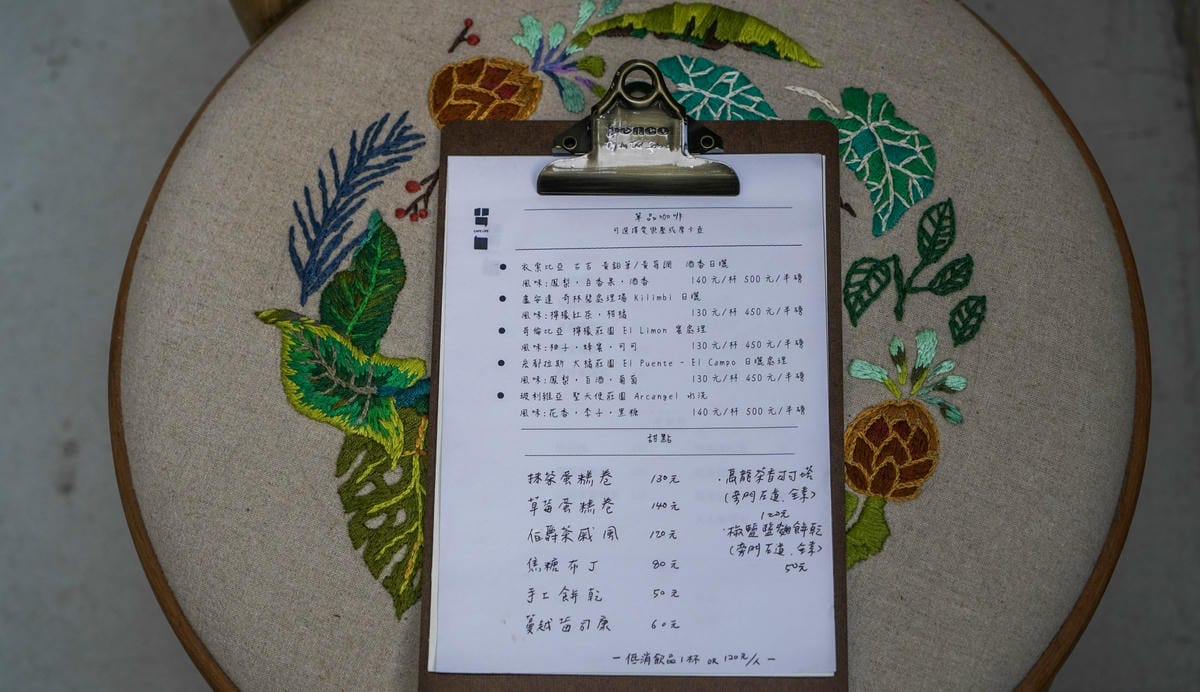 單品咖啡
可選擇愛樂壓或摩卡壺
衣索比亞 古吉 黃鉛筆/黃菊調 酒香日曬
風味:鳳梨,百香果,酒香 140元/杯 500元/半磅
盧安達 奇林碧處理場 Kilimbi 日曬
風味:檸檬紅茶,柑橘 130元/杯 450元/半磅
哥倫比亞 檸檬莊園 El Limon 蜜處理
風味:柚子,蜂蜜,可可 130元/杯 450元/半磅
宏都拉斯 大橋莊園 El Puente - El Campo 日曬處理
風味:鳳梨,白酒,葡萄 130元/杯 450元/半磅
玻利維亞 聖天使莊園 Arcangel 水洗
風味:花香,李子,黑糖 140元/杯 500元/半磅
甜點
抹茶蛋糕卷 130元
草莓蛋糕卷 140元
伯爵茶戚風 120元
焦糖布丁 80元
手工餅乾 50元
蔓越莓司康 60元
·高龍茶香可可塔
(旁門左道.全素)
120元
·椒鹽鹽麴餅乾
(旁門左道.全素)
50元
-低消飲品1杯 or 120元/人-